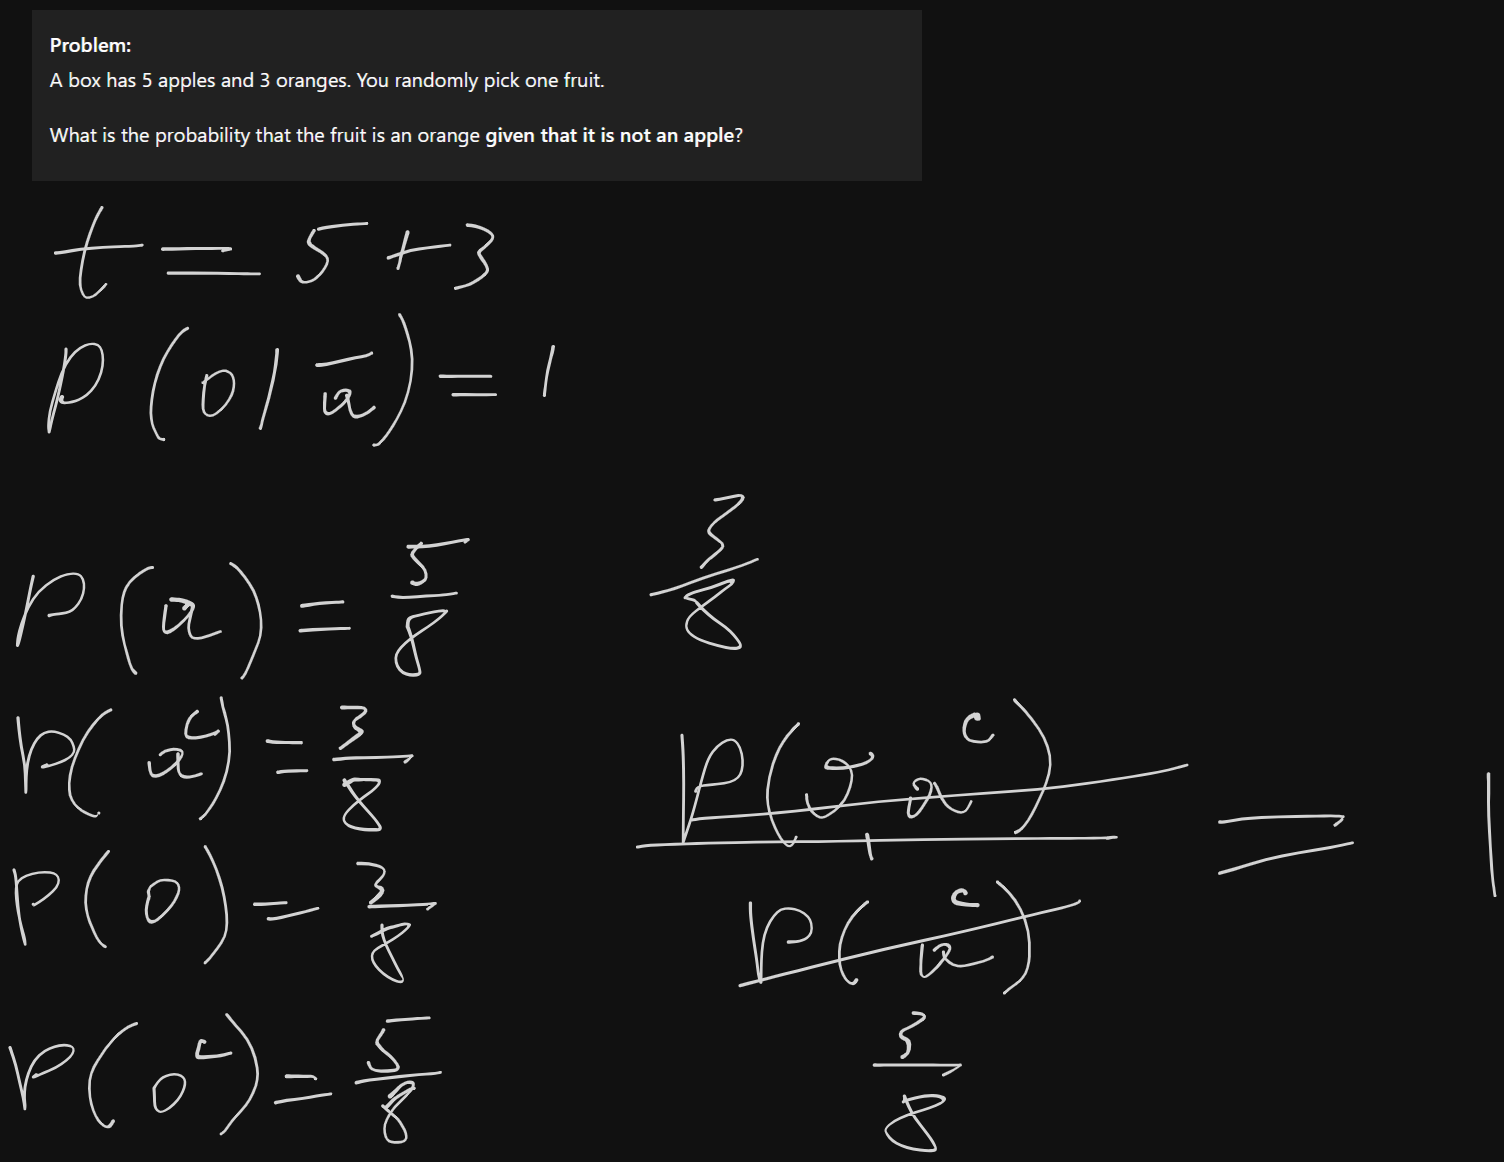 Problem:
A box has 5 apples and 3 oranges. You randomly pick one fruit.
What is the probability that the fruit is an orange given that it is not an apple?
t = 5 + 3
P(o|a̅) = 1
P(a) = 5/8
3/8
P(aᶜ) = 3/8
P(o) = 3/8
P(oᶜ) = 5/8
P(o, aᶜ)
P(aᶜ)
= 1
3/8